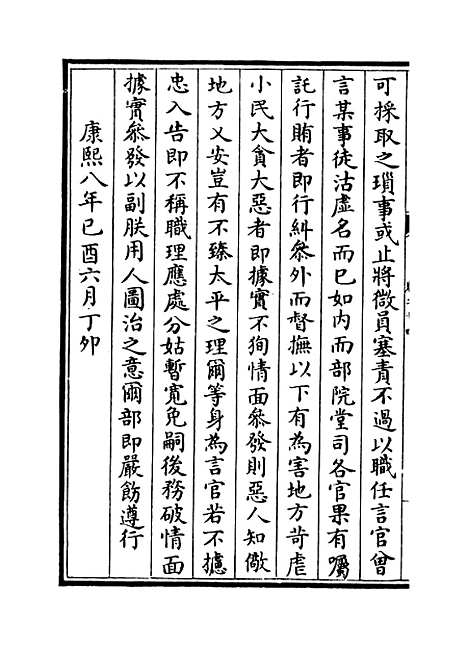 可採取之瑣事或止將微員塞責不過以職任言官曾
言某事徒沽虛名而已如內而部院堂司各官果有囑
託行賄者即行糾叅外而督撫以下有為害地方苛虐
小民大貪大惡者即據實不狥情面叅發則惡人知儆
地方乂安豈有不臻太平之理爾等身為言官若不攄
忠入告即不稱職理應處分姑暫寬免嗣後務破情面
據實叅發以副朕用人圖治之意爾部即嚴飭遵行
康熙八年己酉六月丁卯